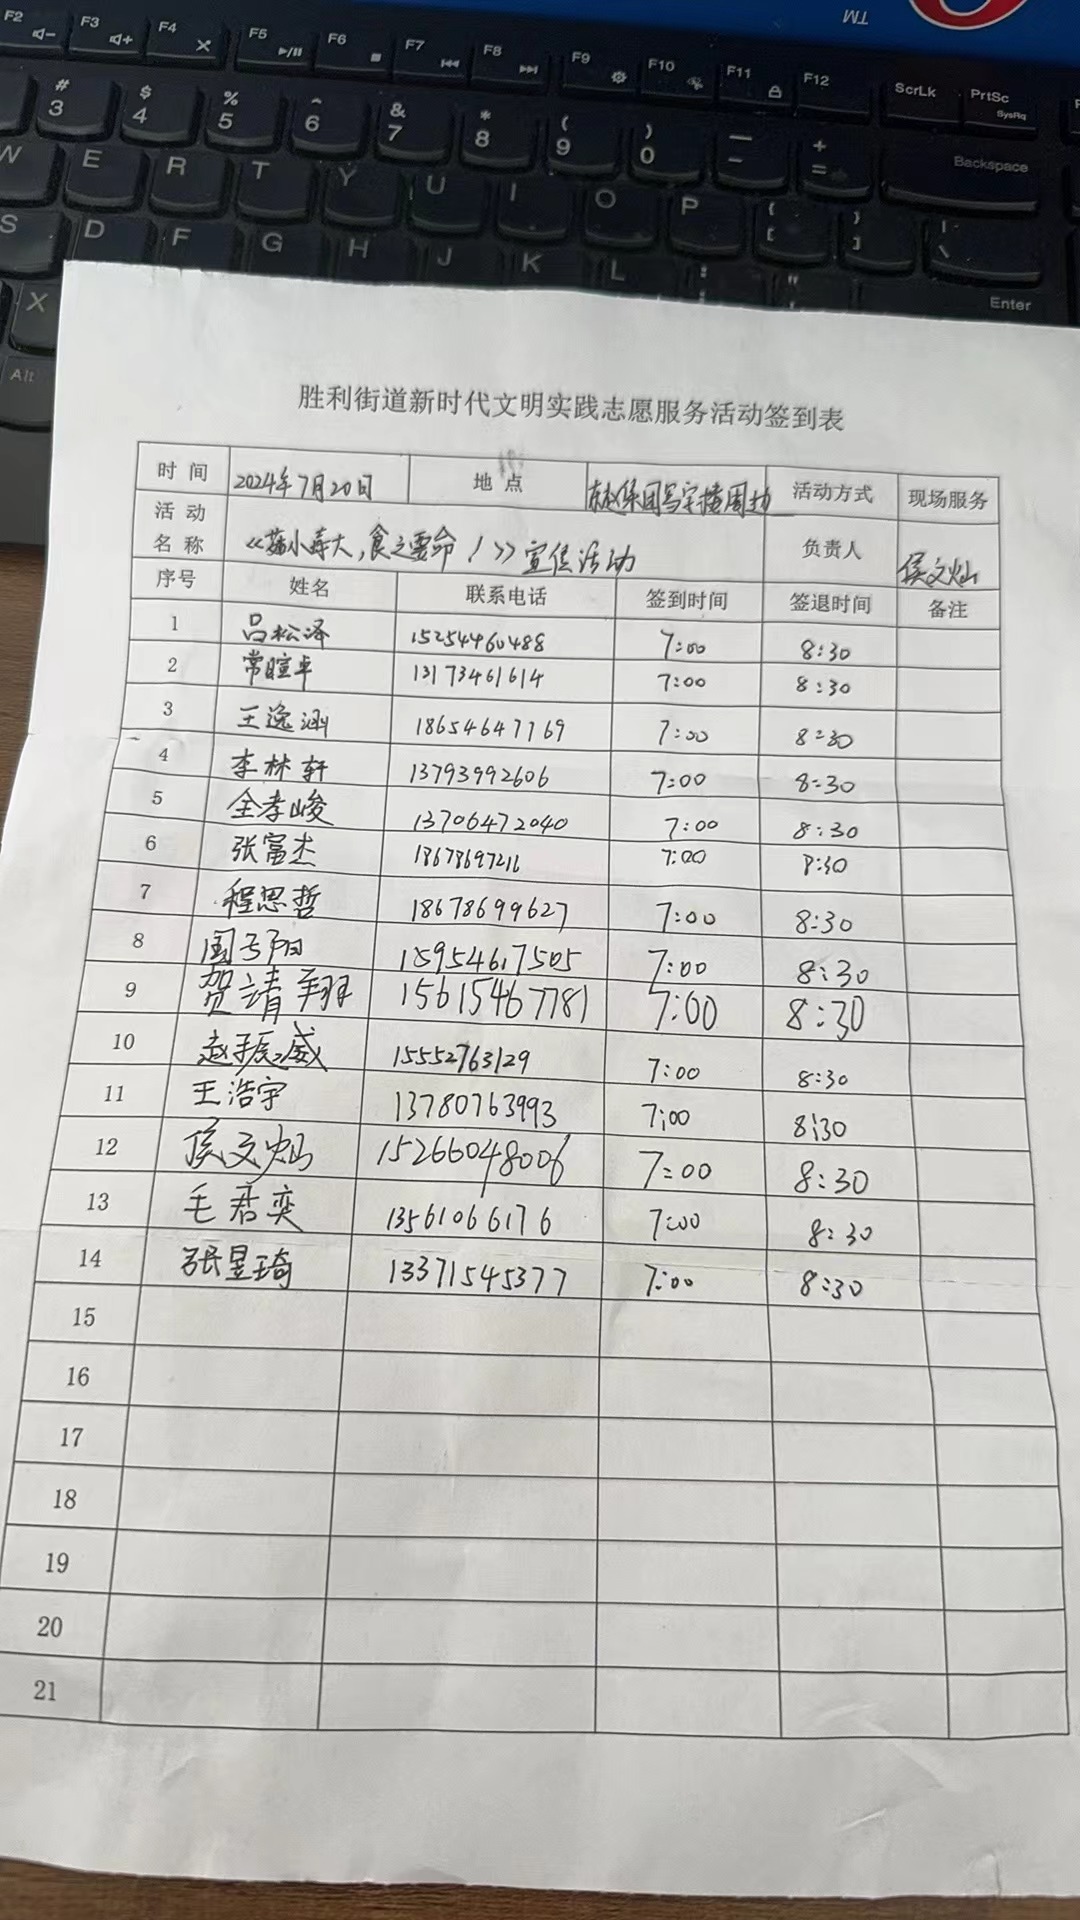 F2 F3 F4 F5 F6 F7 F8 F9 F10 F11 F12 ScrLk PrtSc SysRq
TM
# 3 $ 4 % 5 ^ 6 & 7 * 8 ( 9 ) 0 — - + = Backspace
W E R T Y U I O P { [ } ] | \
S D F G H J K L : ; " Enter
X
Alt
胜利街道新时代文明实践志愿服务活动签到表
时间 2024年7月20日 地点 集团写字楼周边 活动方式 现场服务
活动名称 《菇小毒大,食之要命!》宣传活动 负责人 侯文灿
序号 姓名 联系电话 签到时间 签退时间 备注
1 吕松泽 15254460488 7:00 8:30
2 常暄卓 13173461614 7:00 8:30
3 王逸涵 18654647769 7:00 8:30
4 李林轩 13793992606 7:00 8:30
5 全孝峻 13706472040 7:00 8:30
6 张富杰 18678697216 7:00 8:30
7 程思哲 18678699627 7:00 8:30
8 15954617505 7:00 8:30
9 贺靖翔 15615467781 7:00 8:30
10 赵振威 15552763129 7:00 8:30
11 王浩宇 13780763993 7:00 8:30
12 侯文灿 15266048006 7:00 8:30
13 毛君奕 13561066176 7:00 8:30
14 张昱琦 13371545377 7:00 8:30
15
16
17
18
19
20
21